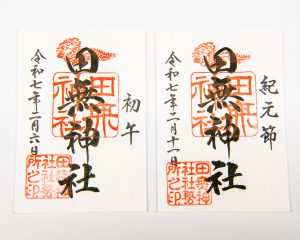 初午
田無神社
令和七年二月六日
田無神社
田無神社社務所之印
紀元節
田無神社
令和七年二月十一日
田無神社
田無神社社務所之印